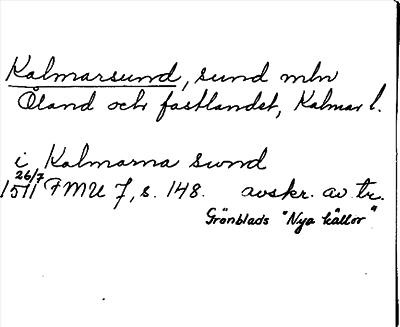 Kalmarsund, sund mln
Öland och fastlandet, Kalmar l.
i Kalmarna swnd
26/7
1511 FMU 7, s. 148. avskr. av tr.
Grönblads "Nya källor"